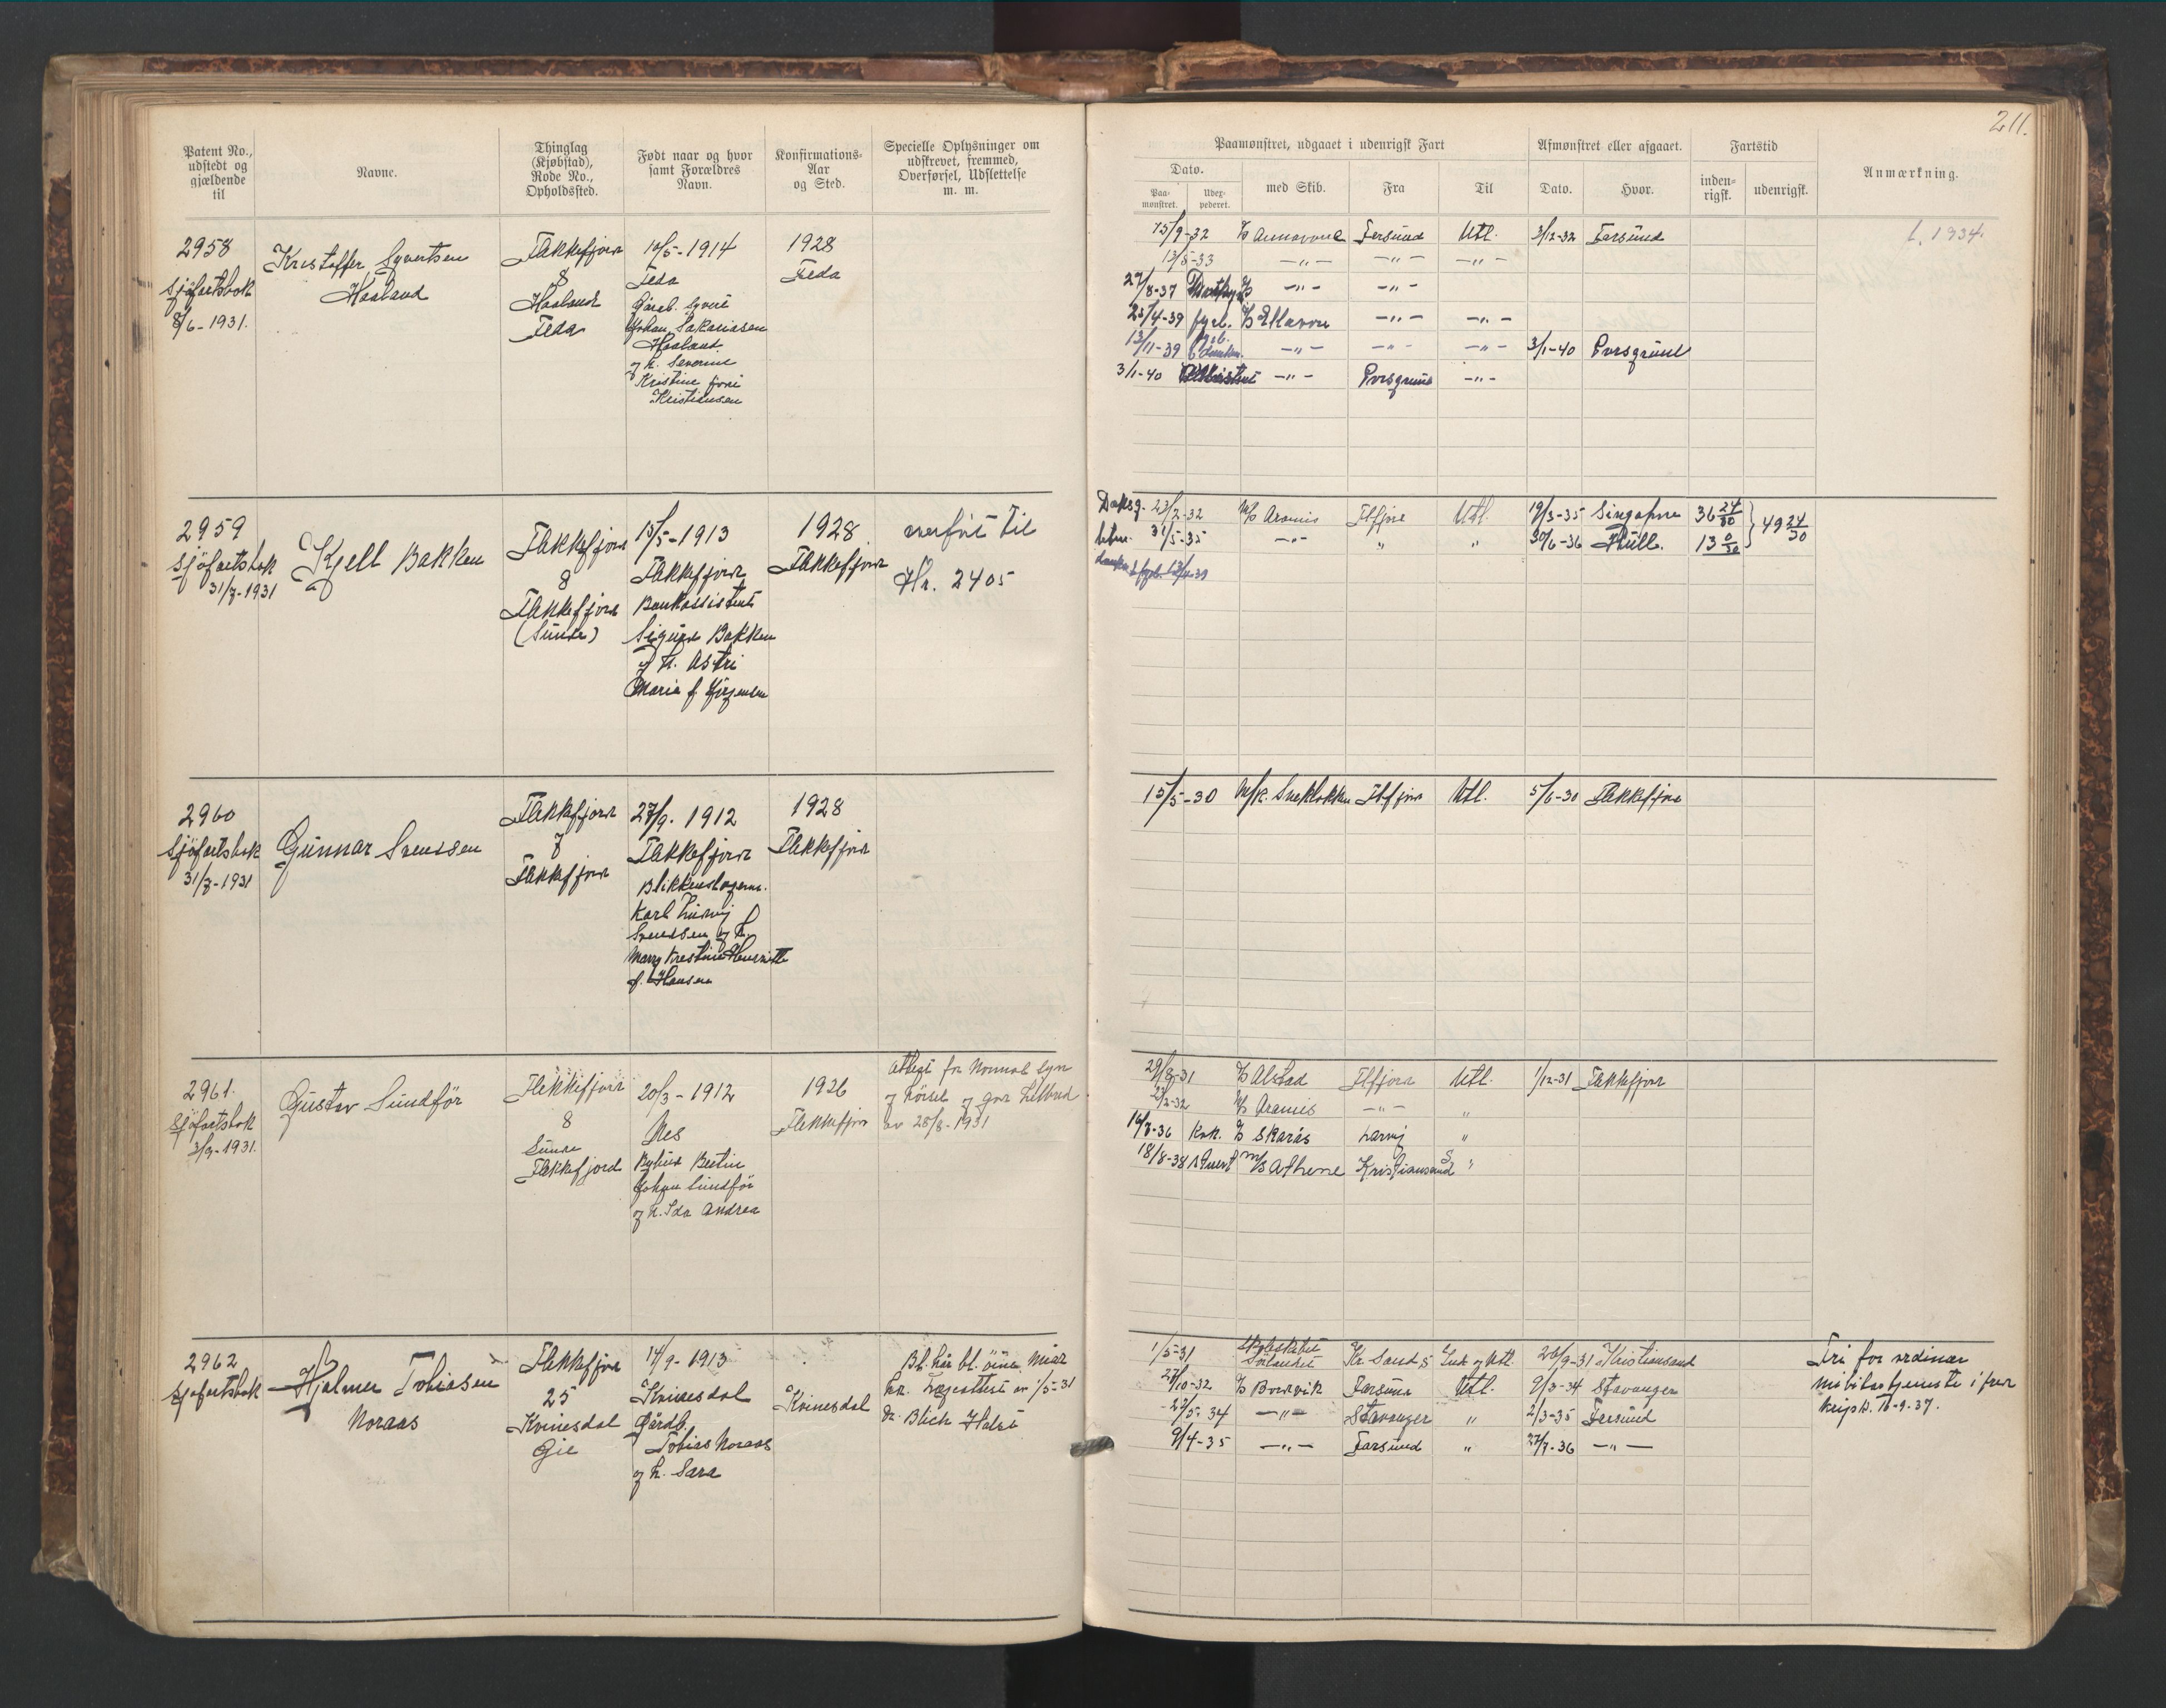 211.
Patent No., udstedt og gjældende til
Navne.
Thinglag (Kjøbstad), Rode No., Opholdssted.
Født naar og hvor samt Forældres Navn.
Konfirmations-Aar og Sted.
Specielle Oplysninger om udskrevet, fremmed, Overførsel, Udslettelse m. m.
Paamønstret, udgaaet i udenrigsk Fart
Dato.
Paa-mønstret.
med Skib.
Fra
Til
Afmønstret eller afgaaet.
Dato.
Hvor.
Fartstid
inden-rigsk.
udenrigsk.
Anmærkning.
2958
Sjøfartsbok
8/6-1931.
Kristoffer Syvertsen
Haaland
Flekkefjord
8
Haaland
Feda
10/5-1914
Feda
Gårdb. Syvert
Johan Sakariasen
Haaland
og h. Severine
Kristine født
Kristiansen
1928
Feda
15/9-32 Farsund Utl. 3/12-32 Farsund
13/5-33 —"— —"— —"—
27/8-37 —"— —"—
25/4-39 fyrb. —"— —"—
13/11-39 —"— —"— —"— 3/1-40 Porsgrund
3/1-40 —"— Porsgrund —"—
2959
Sjøfartsbok
31/7-1931
Kjell Bakken
Flekkefjord
8
Flekkefjord
(Sunde)
15/5-1913
Flekkefjord
Bankassistent
Sigurd Bakken
og h. Astri
Maria f. Jörgensen
1928
Flekkefjord
overført til
Nr. 2405
23/2-32 M/S Aramis Flfjord Utl. 19/3-35 Singapore 36 24/30
31/5-35 —"— " " 30/6-36 Hull. 13 0/30
49 24/30
2960
Sjøfartsbok
31/7-1931
Gunnar Svensen
Flekkefjord
7
Flekkefjord
27/9-1912
Flekkefjord
Blikkenslagerm.
Karl Ludvig
Svendsen og h.
Mary Kristine Henriette
f. Hansen
1928
Flekkefjord
15/5-30 M/K. Flfjord Utl. 5/6-30 Flekkefjord
2961.
Sjøfartsbok
3/9-1931.
Gustav Sundför
Flekkefjord
8
Sunde
Flekkefjord
20/3-1912
Nes
Bertin
Johan Sundför
og h. Ida Andrea
1926
Flekkefjord
Attest for Normal Syn
og Hörsel
av 28/8-1931
29/8-31 Alstad Flfjord Utl. 1/12-31 Flekkefjord
M/S Aramis —"— "
Kok. Skarås Larvig "
18/8-38 M/S Athene Kristiansand S "
2962
Sjøfartsbok
Hjalmer Tobiasen
Noraas
Flekkefjord
25
Kvinesdal
Gie
14/9-1913
Kvinesdal
Gårdb.
Tobias Noraas
og h. Sara
Kvinesdal
Bl. hår bl. öine
Lægeattest av 1/5-31
Dr. Blich Holst
1/5-31 Skoleskibet Sörlandet Kr. Sand S Inl. og Utl. 26/9-31 Kristiansand
27/10-32 Farsund Utl. 9/3-34 Stavanger
—"— Stavanger " 2/3-35 Farsund
9/4-35 —"— Farsund " 27/7-36 —"—
Fri for ordinær
militærtjeneste i fred